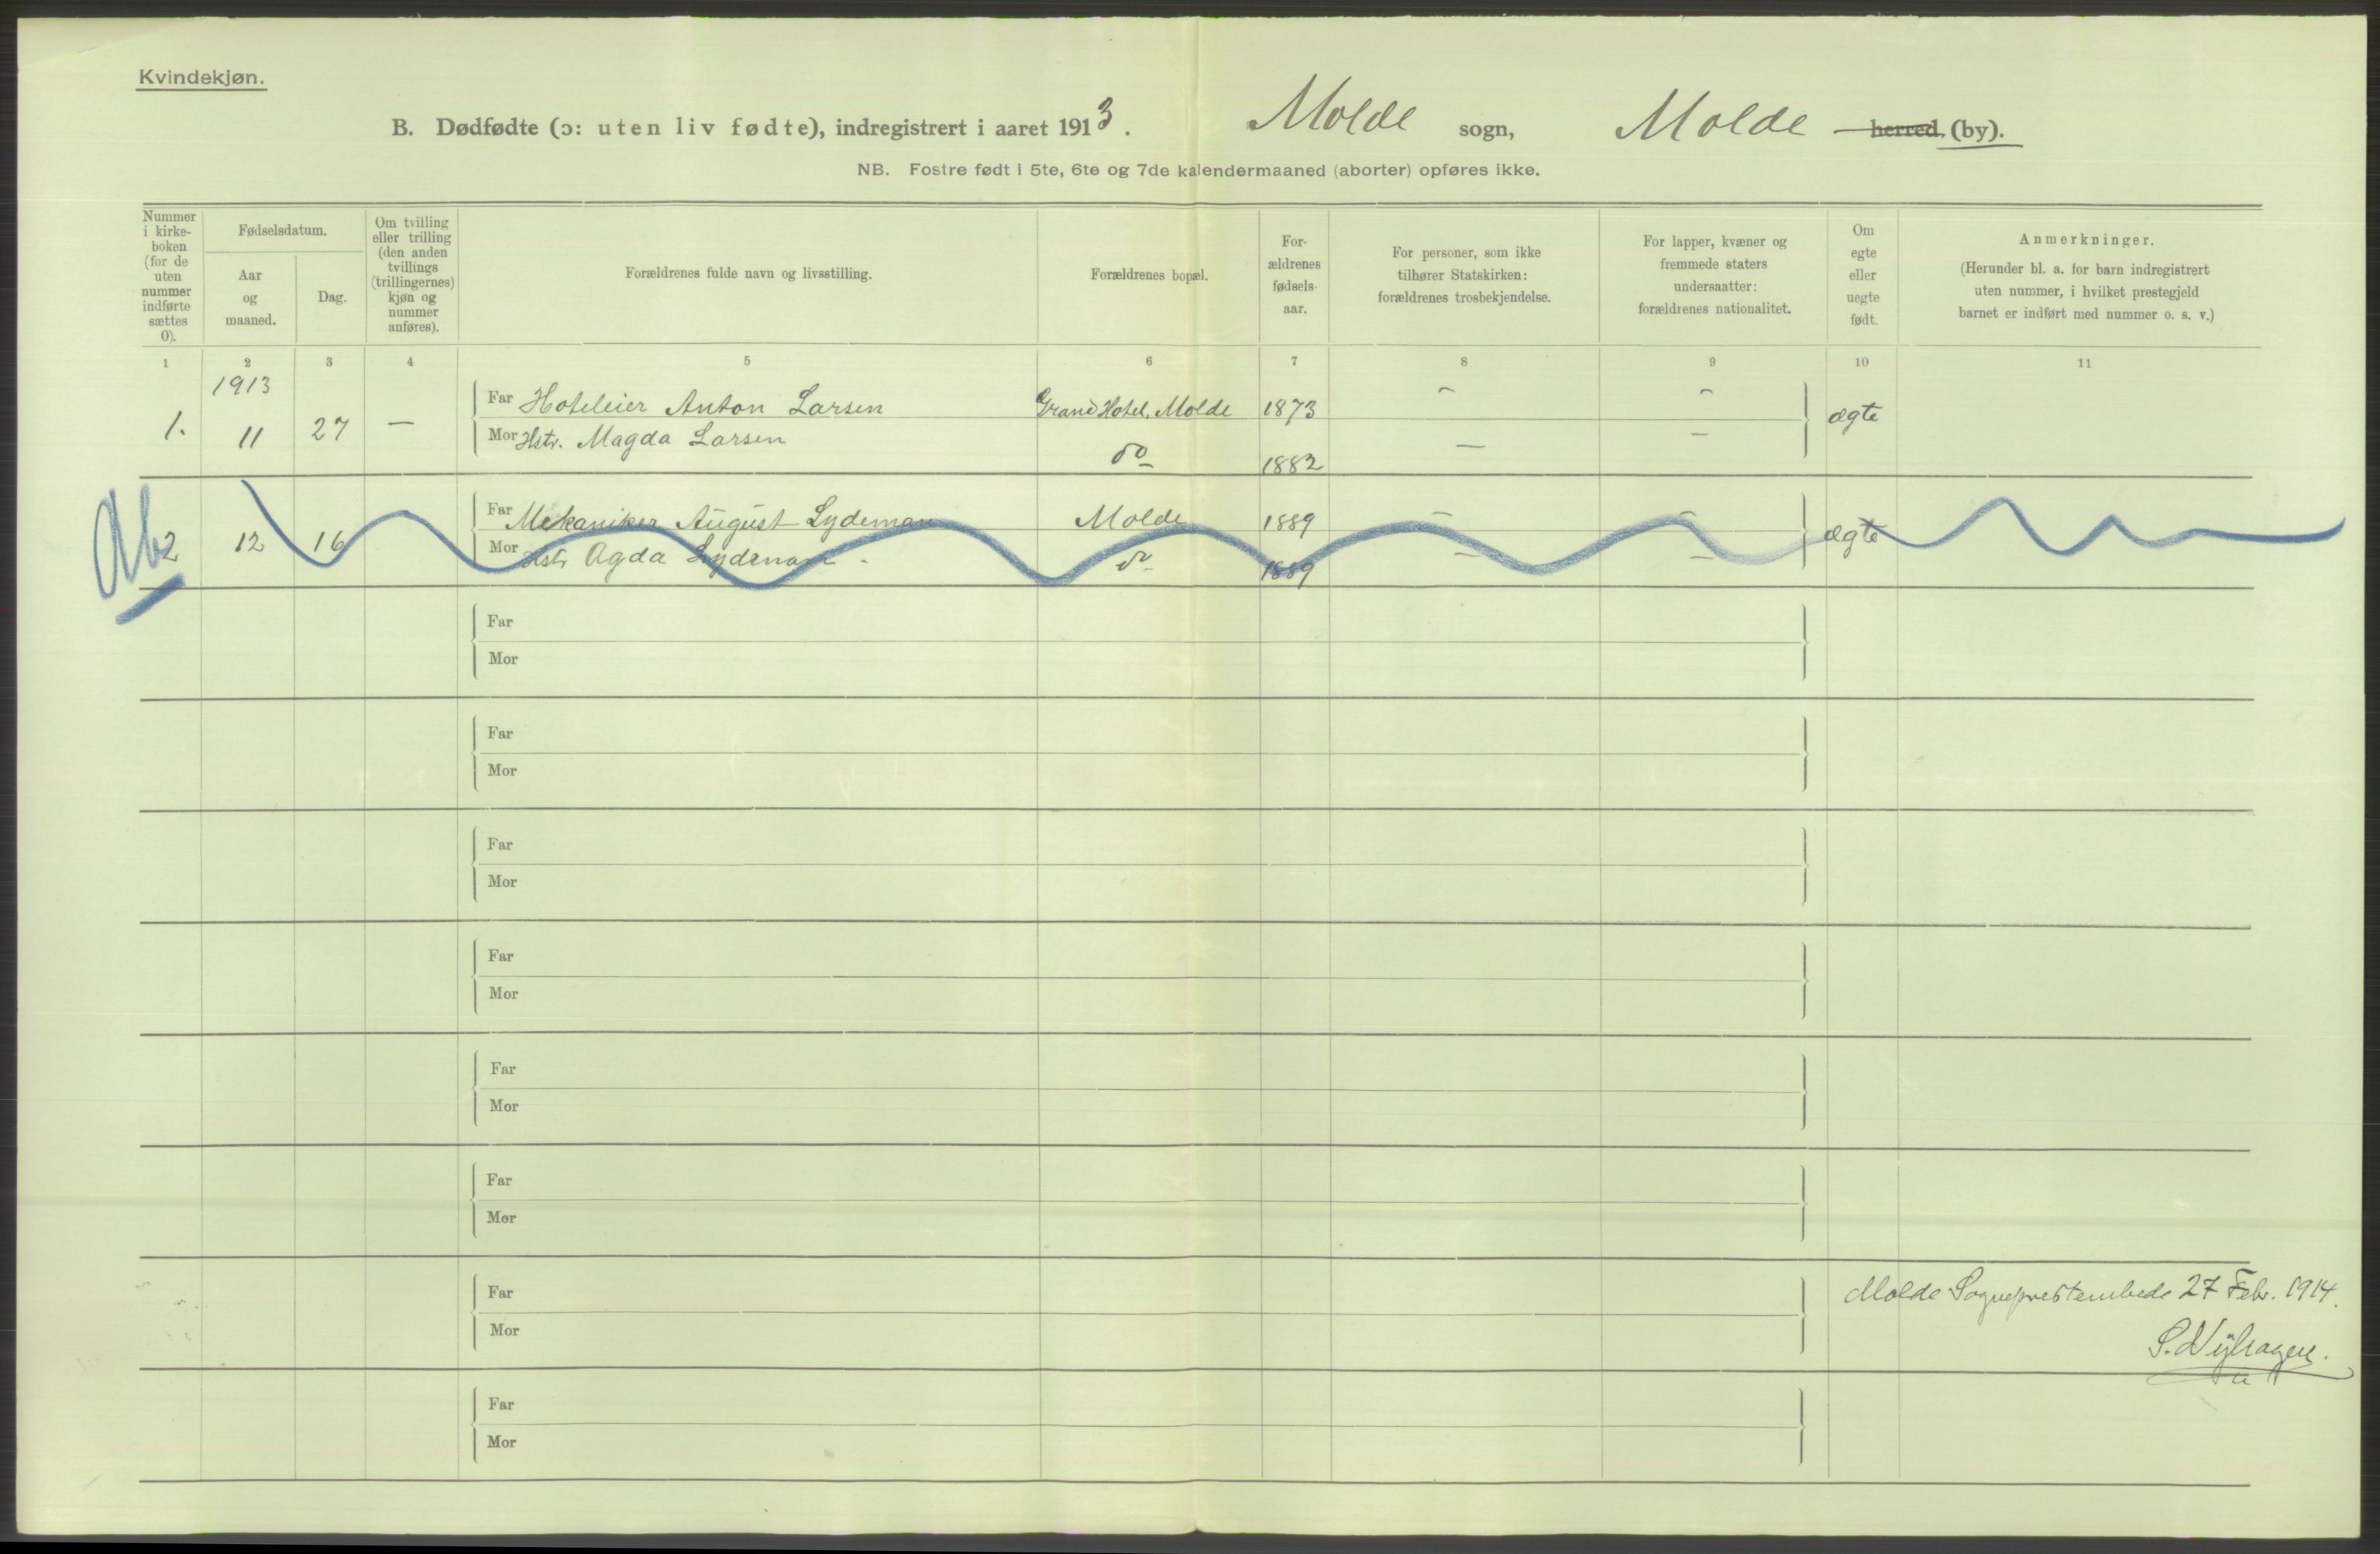 Kvindekjøn.
B. Dødfødte (ɔ: uten liv fødte), indregistrert i aaret 1913. Molde sogn, Molde herred (by).
NB. Fostre født i 5te, 6te og 7de kalendermaaned (aborter) opføres ikke.
Nummer i kirke-boken (for de uten nummer indførte sættes 0).
Fødselsdatum.
Aar og maaned.
Dag.
Om tvilling eller trilling (den anden tvillings (trillingernes) kjøn og nummer anføres).
Forældrenes fulde navn og livsstilling.
Forældrenes bopæl.
For-ældrenes fødsels-aar.
For personer, som ikke tilhører Statskirken: forældrenes trosbekjendelse.
For lapper, kvæner og fremmede staters undersaatter: forældrenes nationalitet.
Om egte eller uegte født.
Anmerkninger.
(Herunder bl. a. for barn indregistrert uten nummer, i hvilket prestegjeld barnet er indført med nummer o. s. v.)
1 2 3 4 5 6 7 8 9 10 11
1913
1. 11 27 — Far Hoteleier Anton Larsen Grand Hotel, Molde 1873 – – ægte
Mor Hstr. Magda Larsen do 1882 — –
Ab 2 12 16 Far Mekaniker August Lydeman Molde 1889 – – ægte
Mor Hstr Agda Lydeman do 1889 – –
Far
Mor
Far
Mor
Far
Mor
Far
Mor
Far
Mor
Far
Mor
Far Molde Sogneprestembede 27 Febr. 1914.
Mor
Far
Mor